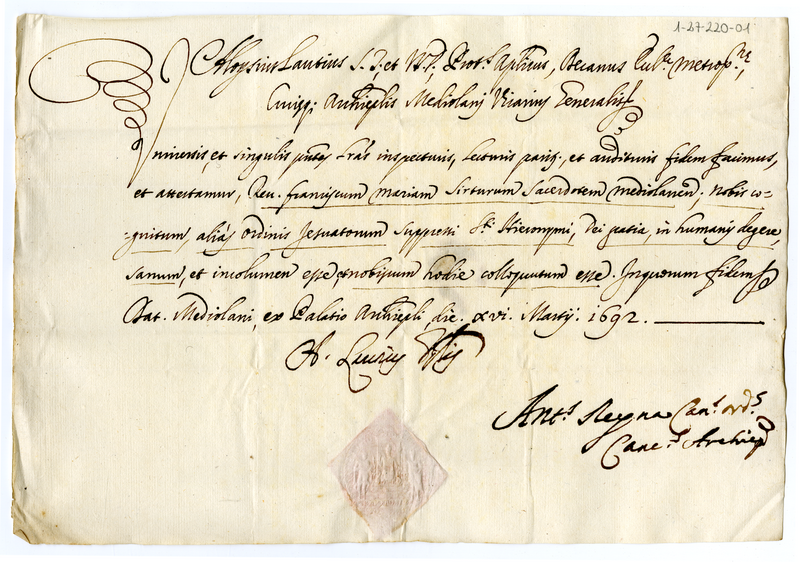 1-27-220-01
Aloysius Lautius S. T. et V. I. Prot.s Aplicus, Decanus Metrop.
Archieplis Mediolani Vicarius Generalis
Universis, et singulis pntes lras inspecturis, lecturis pariter, et audituris fidem facimus,
et attestamur, Reu. franciscum mariam Sirturum Sacerdotem mediolanen. nobis co-
gnitum, alias ordinis Jesuatorum suppressi S.ti Hieronymi, Dei gratia, in humanis degere,
sanum, et incolumen esse, et nobiscum hodie colloquutum esse. In quorum fidem
Dat. Mediolani, ex Palatio Archiepli, die. xvi. Martij. 1692.
A.
Ant.s Reyna Can.s ord.s
Canc.s Archiep